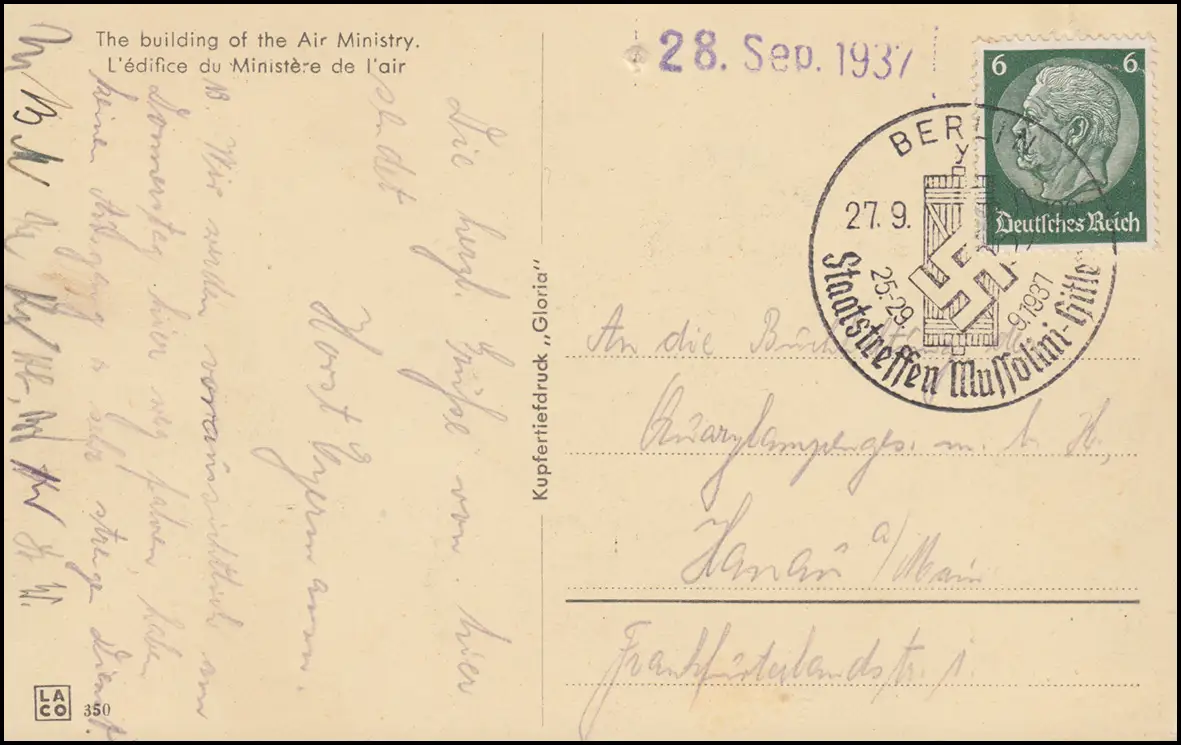 The building of the Air Ministry.
L'édifice du Ministère de l'air
Die herzl. Grüße von hier
sendet
Horst
Wir werden voraussichtlich am
Donnerstag hier weg fahren, haben
keinen Ausgang u. sehr strenge Dienst.
LA
CO
350
Kupfertiefdruck „Gloria"
28. Sep. 1937
6 6
Deutsches Reich
BERLIN
27.9.
25.-29.
9.1937
Staatstreffen Mussolini-Hitler
An die
Quarzlampenges. m. b. H.,
Hanau a/Main
Frankfurterlandstr. 1.